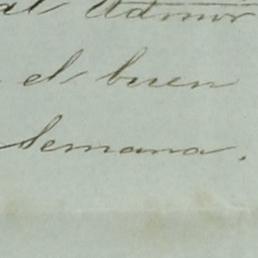 al Admor
el buen
semana.